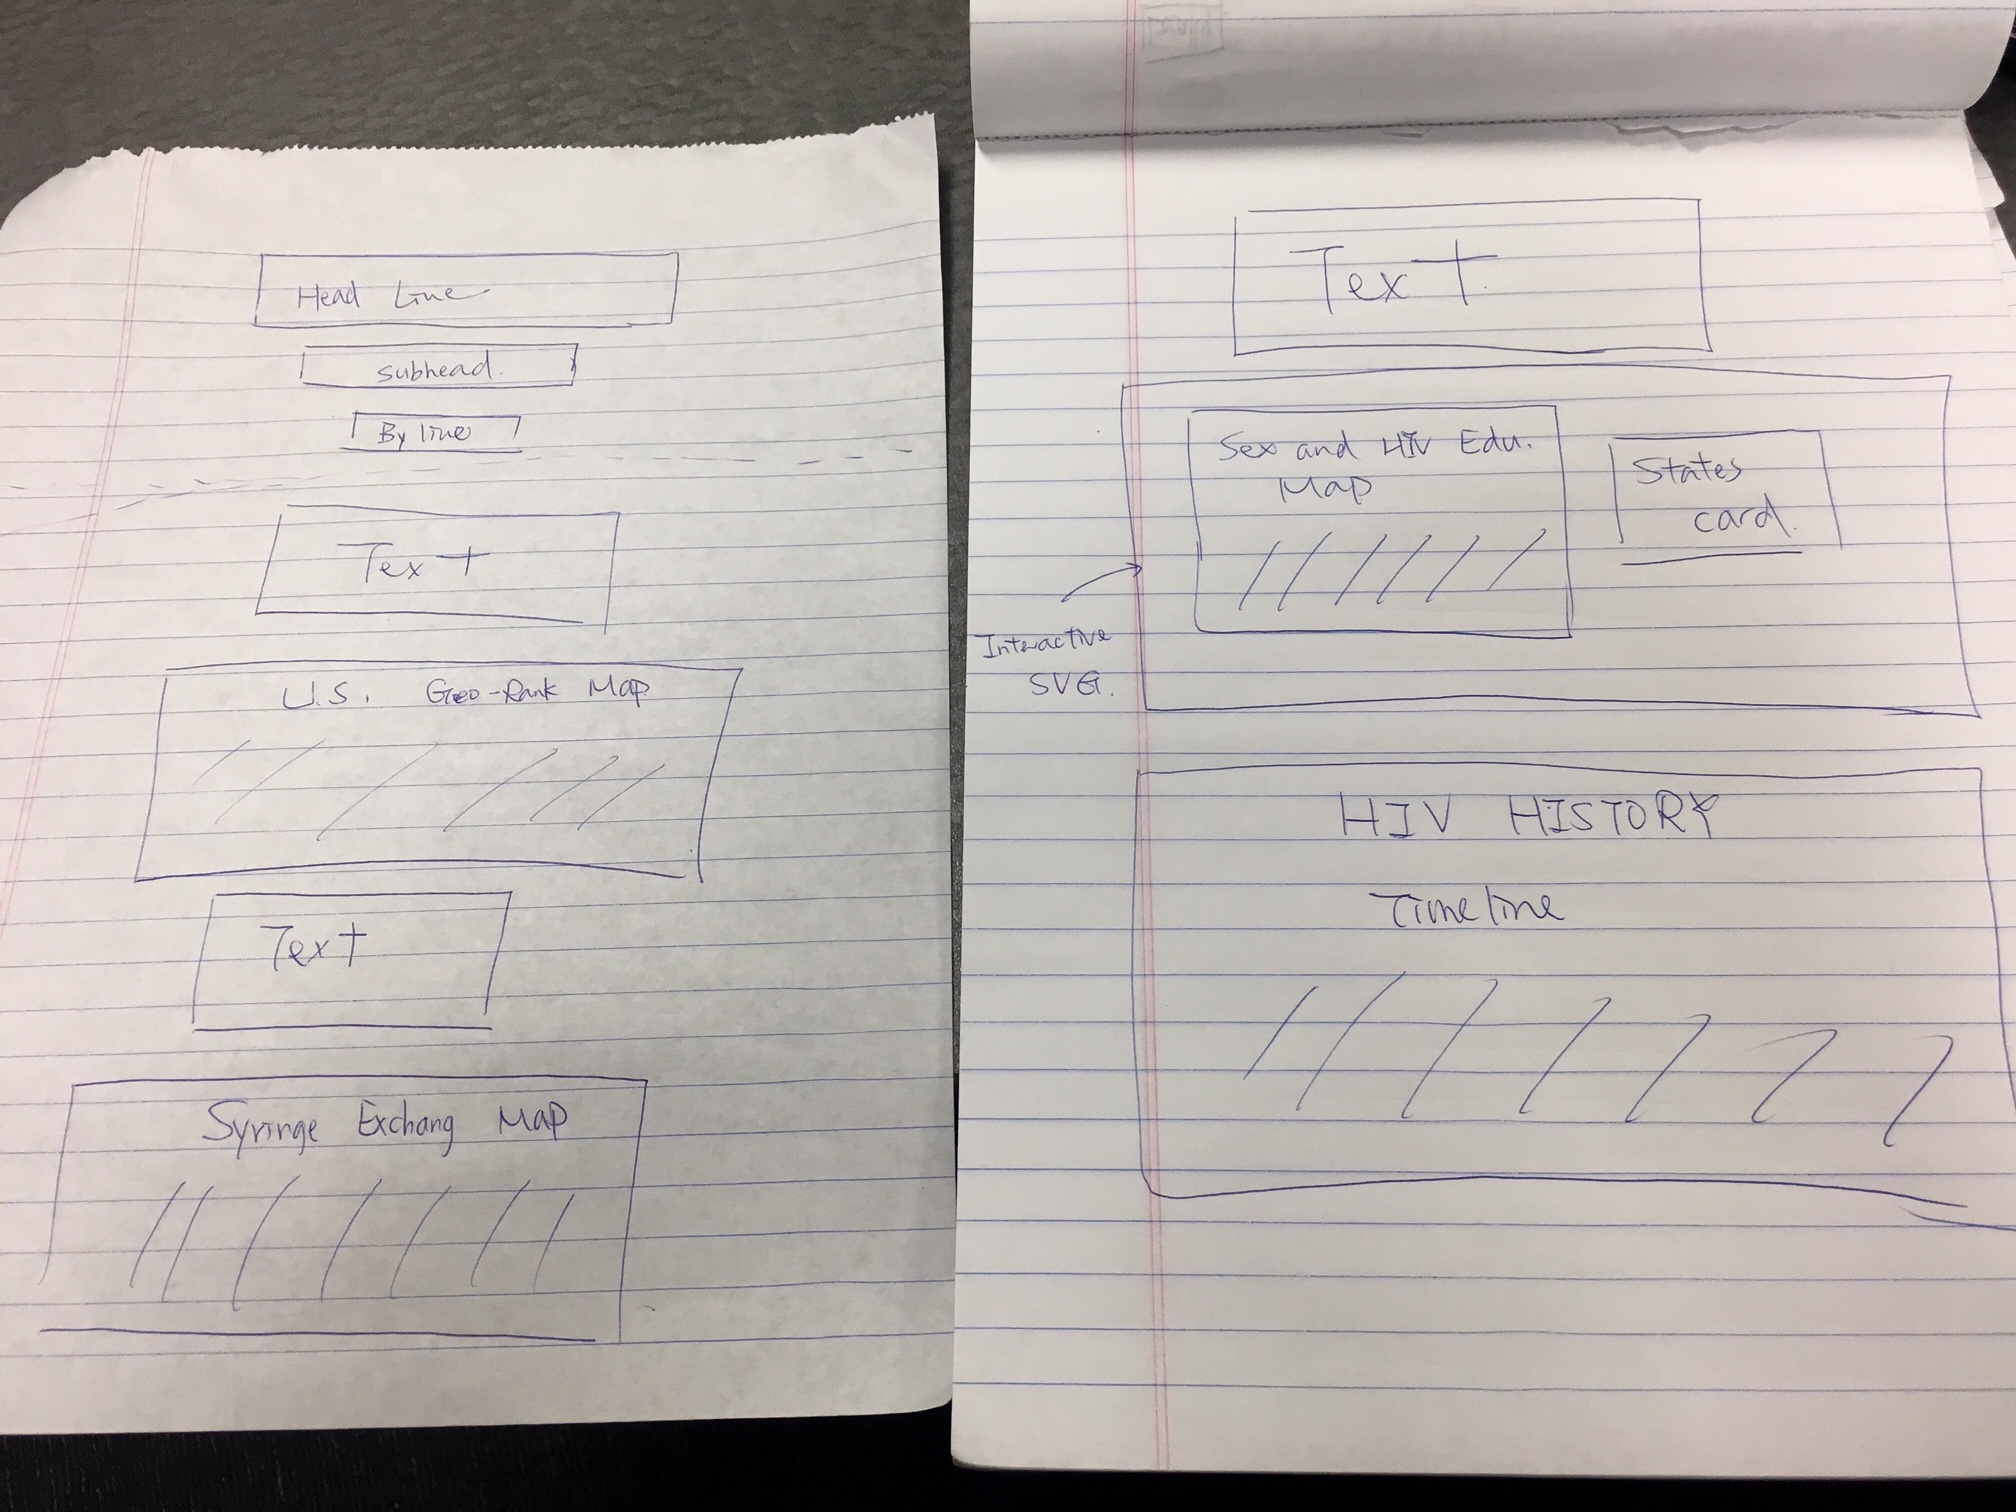 Head Line
subhead.
By line
Text
U.S. Geo-Rank Map
Text
Syringe Exchang Map
Text
Sex and HIV Edu.
Map
States
card.
Interactive
SVG.
HIV HISTORY
Timeline